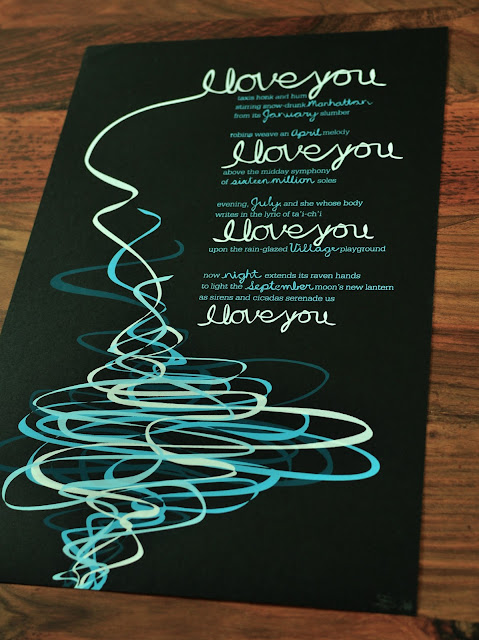 I love you
taxis honk and hum
stirring snow-drunk Manhattan
from its January slumber
robins weave an April melody
I love you
above the midday symphony
of sixteen million soles
evening, July, and she whose body
writes in the lyric of ta'i-ch'i
I love you
upon the rain-glazed Village playground
now night extends its raven hands
to light the September moon's new lantern
as sirens and cicadas serenade us
I love you